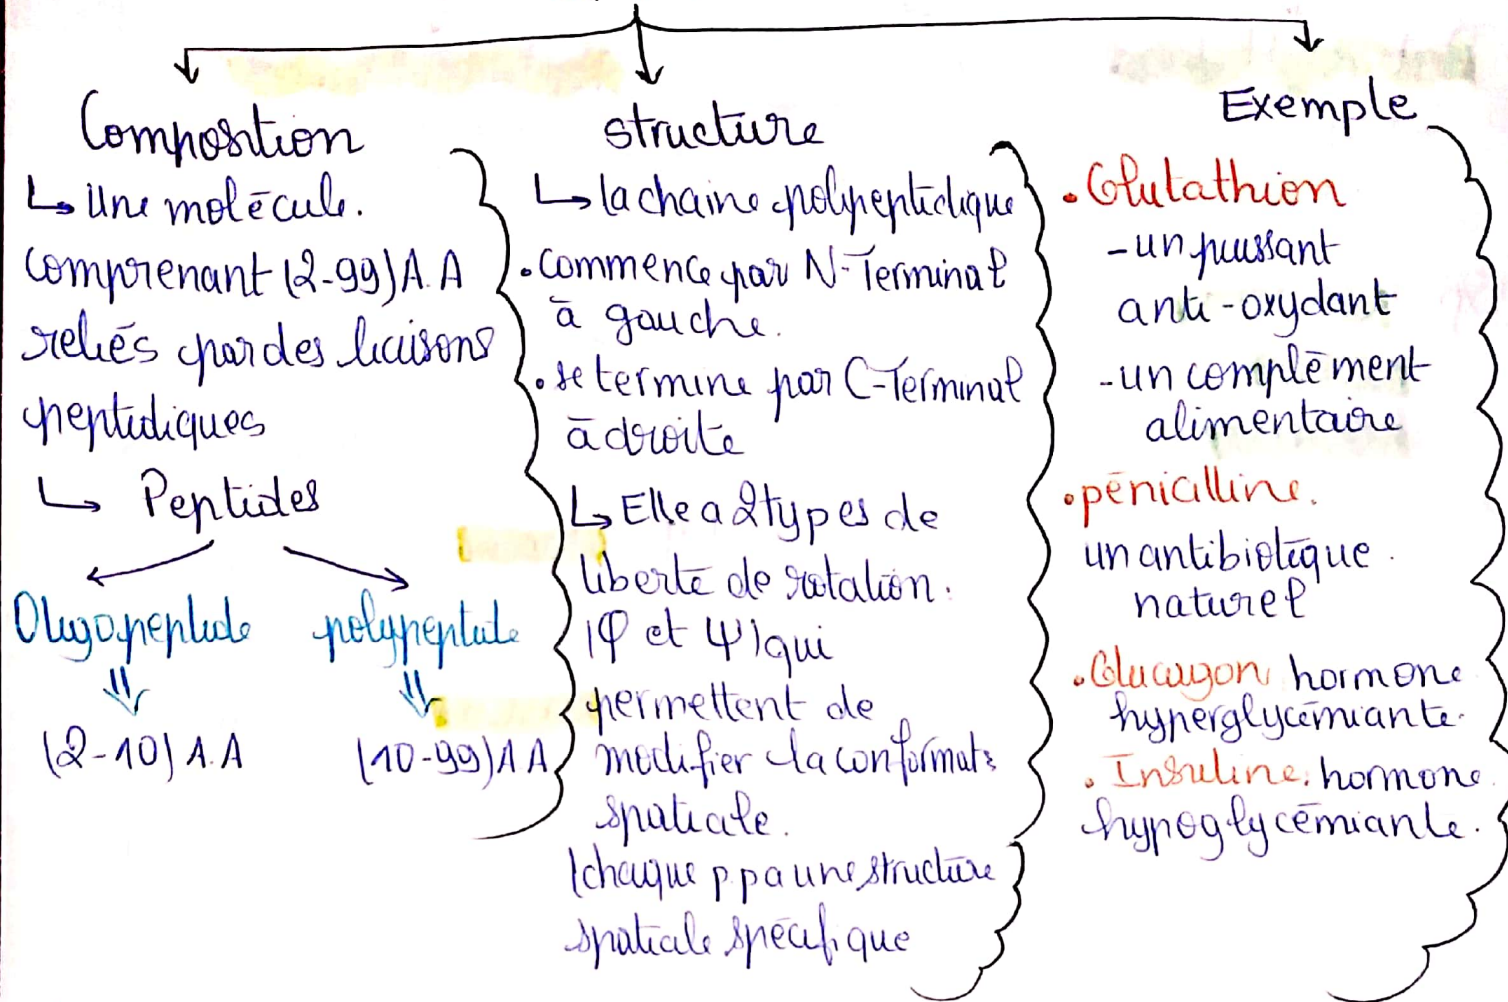 Composition
↳ Une molécule.
comprenant (2-99) A.A
reliés par des liaisons
peptidiques
↳ Peptides
Oligopeptide polypeptide
(2-10) A.A (10-99) A A
structure
↳ la chaine polypeptidique
• commence par N-Terminal
à gauche.
• se termine par C-Terminal
à droite
↳ Elle a 2 types de
liberté de rotation.
(φ et ψ) qui
permettent de
modifier la conformat°
spatiale.
(chaque p.p a une structure
spatiale spécifique
Exemple
• Glutathion
- un puissant
anti-oxydant
- un complément
alimentaire
• pénicilline.
un antibiotique.
naturel
• Glucagon hormone
hyperglycémiante.
• Insuline. hormone
hypoglycémiante.